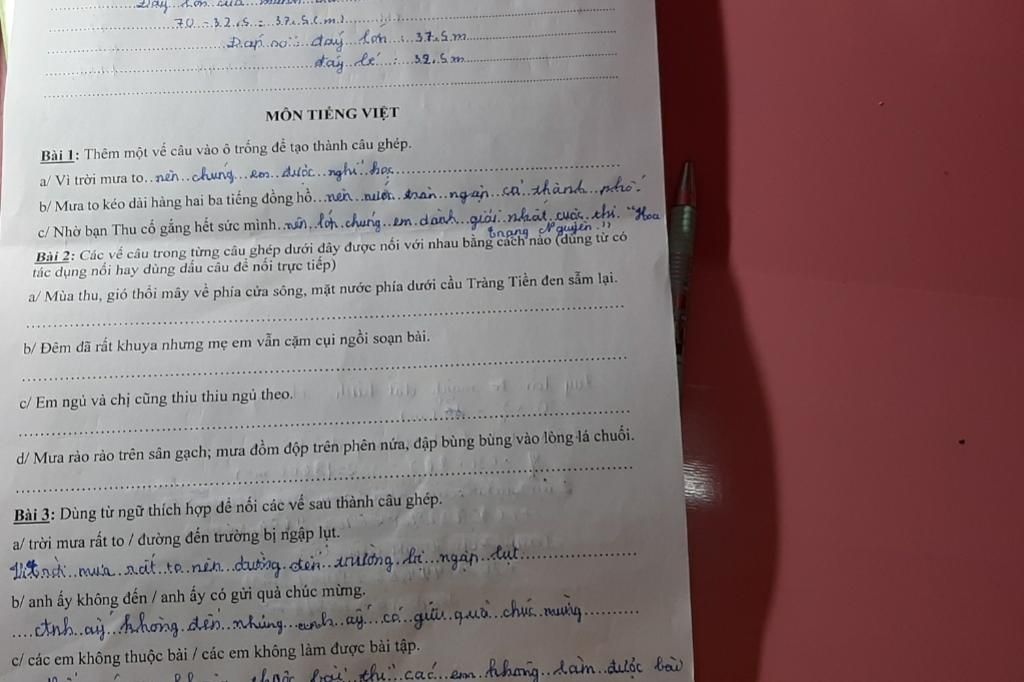 Dãy lớn của
70 - 32,5 = 37,5 (m)
Đáp số: đáy lớn : 37,5 m
đáy bé : 32,5 m
MÔN TIẾNG VIỆT
Bài 1: Thêm một vế câu vào ô trống để tạo thành câu ghép.
a/ Vì trời mưa to nên chúng em được nghỉ học
b/ Mưa to kéo dài hàng hai ba tiếng đồng hồ nên nước tràn ngập cả thành phố.
c/ Nhờ bạn Thu cố gắng hết sức mình nên lớp chúng em dành giải nhất cuộc thi "Hoa
trạng Nguyên"
Bài 2: Các vế câu trong từng câu ghép dưới đây được nối với nhau bằng cách nào (dùng từ có
tác dụng nối hay dùng dấu câu để nối trực tiếp)
a/ Mùa thu, gió thổi mây về phía cửa sông, mặt nước phía dưới cầu Tràng Tiền đen sẫm lại.
b/ Đêm đã rất khuya nhưng mẹ em vẫn cặm cụi ngồi soạn bài.
c/ Em ngủ và chị cũng thiu thiu ngủ theo.
d/ Mưa rào rào trên sân gạch; mưa đồm độp trên phên nứa, đập bùng bùng vào lòng lá chuối.
Bài 3: Dùng từ ngữ thích hợp để nối các vế sau thành câu ghép.
a/ trời mưa rất to / đường đến trường bị ngập lụt.
Vì trời mưa rất to nên đường đến trường bị ngập lụt
b/ anh ấy không đến / anh ấy có gửi quà chúc mừng.
Anh ấy không đến nhưng anh ấy có gửi quà chúc mừng
c/ các em không thuộc bài / các em không làm được bài tập.
thuộc bài thì các em không làm được bài